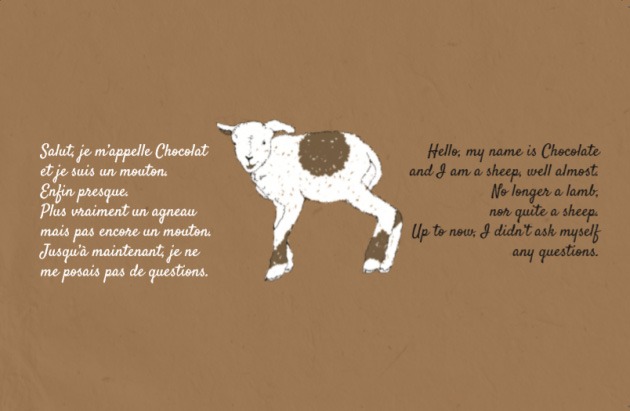 Salut, je m'appelle Chocolat
et je suis un mouton.
Enfin presque.
Plus vraiment un agneau
mais pas encore un mouton.
Jusqu'à maintenant, je ne
me posais pas de questions.
Hello, my name is Chocolate
and I am a sheep, well almost.
No longer a lamb,
nor quite a sheep.
Up to now, I didn't ask myself
any questions.